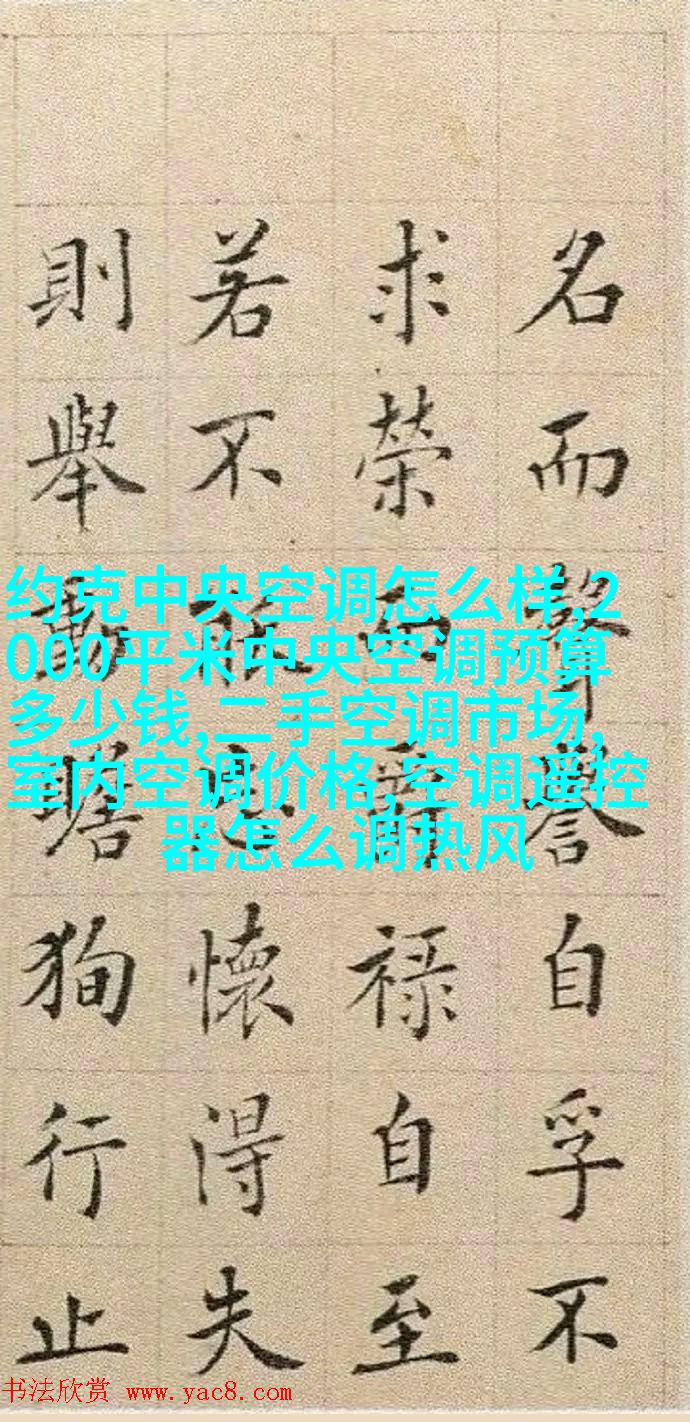 名而聲譽自孚不
求榮而爵禄自至
若不忘懷得失
則舉動瞻狥行止
约克中央空调怎么样,2
000平米中央空调预算
多少钱,二手空调市场,
室内空调价格,空调遥控
器怎么调热风
书法欣赏 www.yac8.com